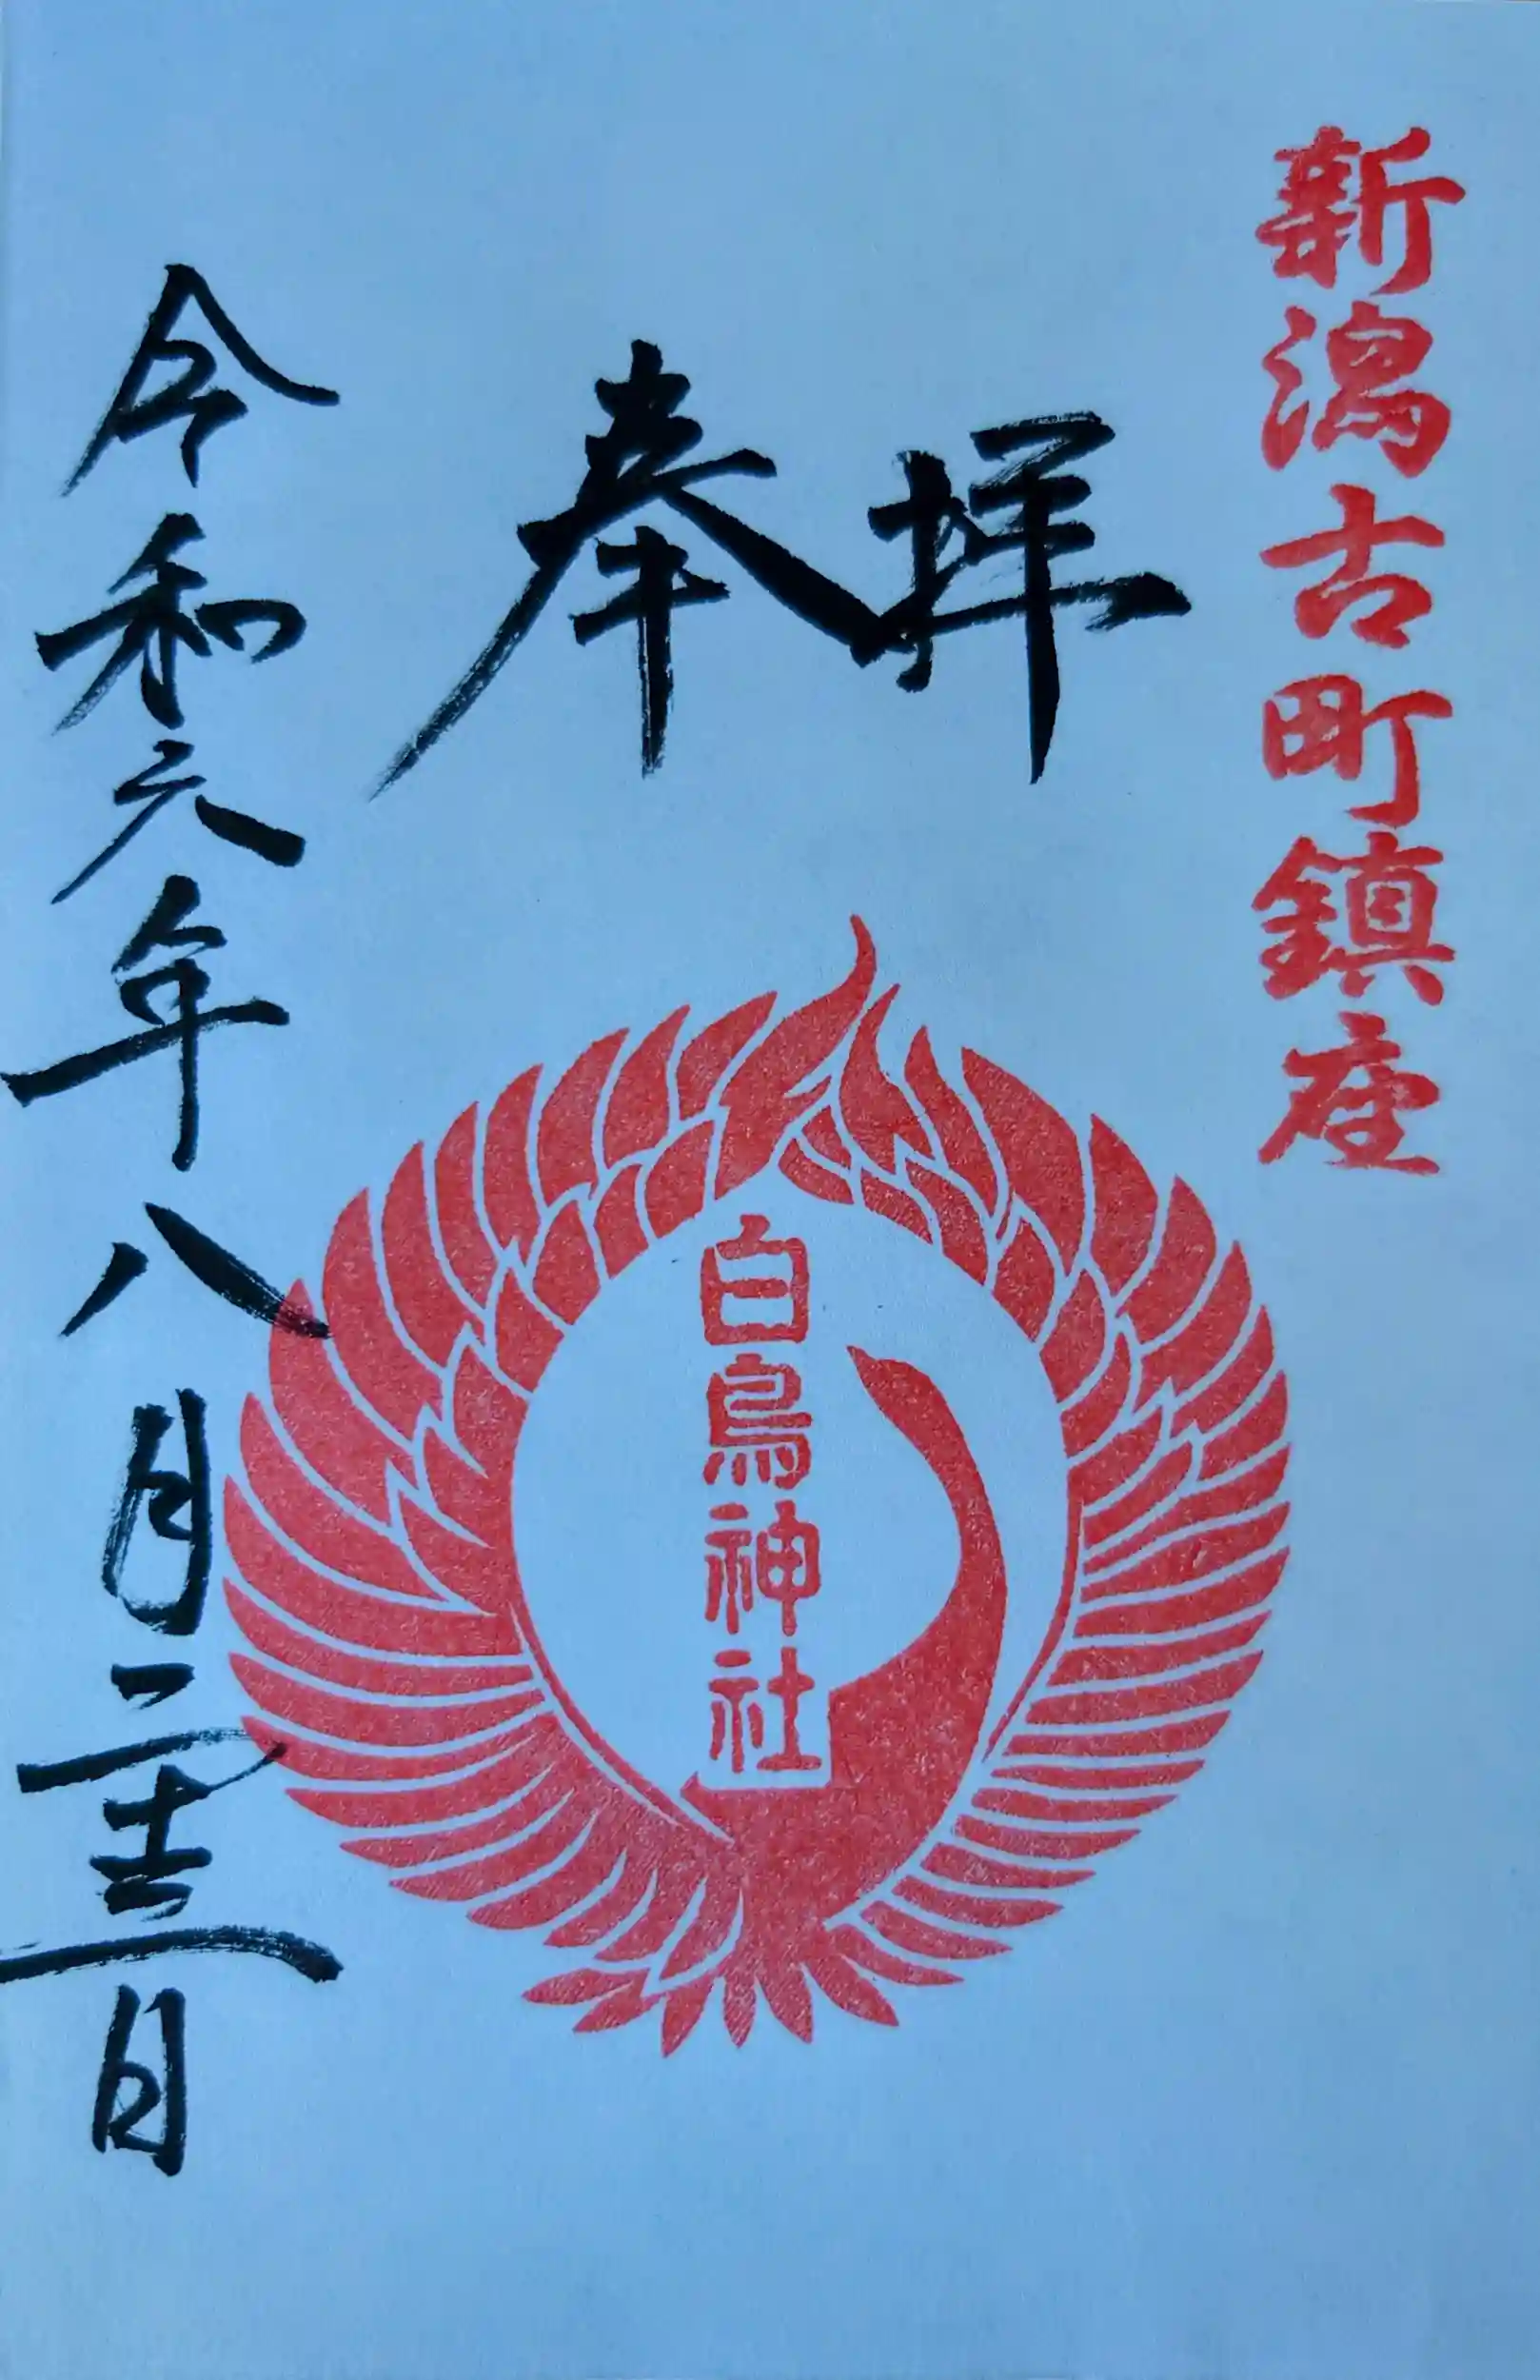 新潟古町鎮座
奉拝
白鳥神社
令和六年八月二十三日